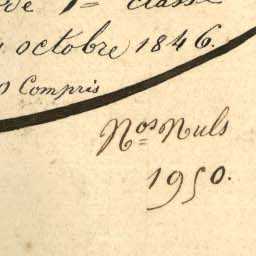 de 1re classe
octobre 1846.
Compris
Nos Nuls
1950.